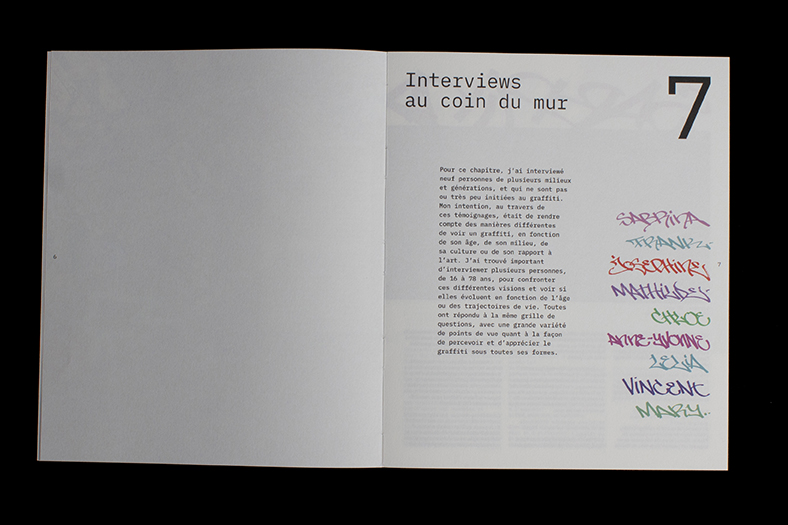 6
Interviews
au coin du mur
7
Pour ce chapitre, j'ai interviewé
neuf personnes de plusieurs milieux
et générations, et qui ne sont pas
ou très peu initiées au graffiti.
Mon intention, au travers de
ces témoignages, était de rendre
compte des manières différentes
de voir un graffiti, en fonction
de son âge, de son milieu, de
sa culture ou de son rapport à
l'art. J'ai trouvé important
d'interviewer plusieurs personnes,
de 16 à 78 ans, pour confronter
ces différentes visions et voir si
elles évoluent en fonction de l'âge
ou des trajectoires de vie. Toutes
ont répondu à la même grille de
questions, avec une grande variété
de points de vue quant à la façon
de percevoir et d'apprécier le
graffiti sous toutes ses formes.
SABRINA
FRANK.
JOSEPHINE
MATHILDE
CHLOE
ANNE-YVONNE
LELIA
VINCENT
MARY..
7